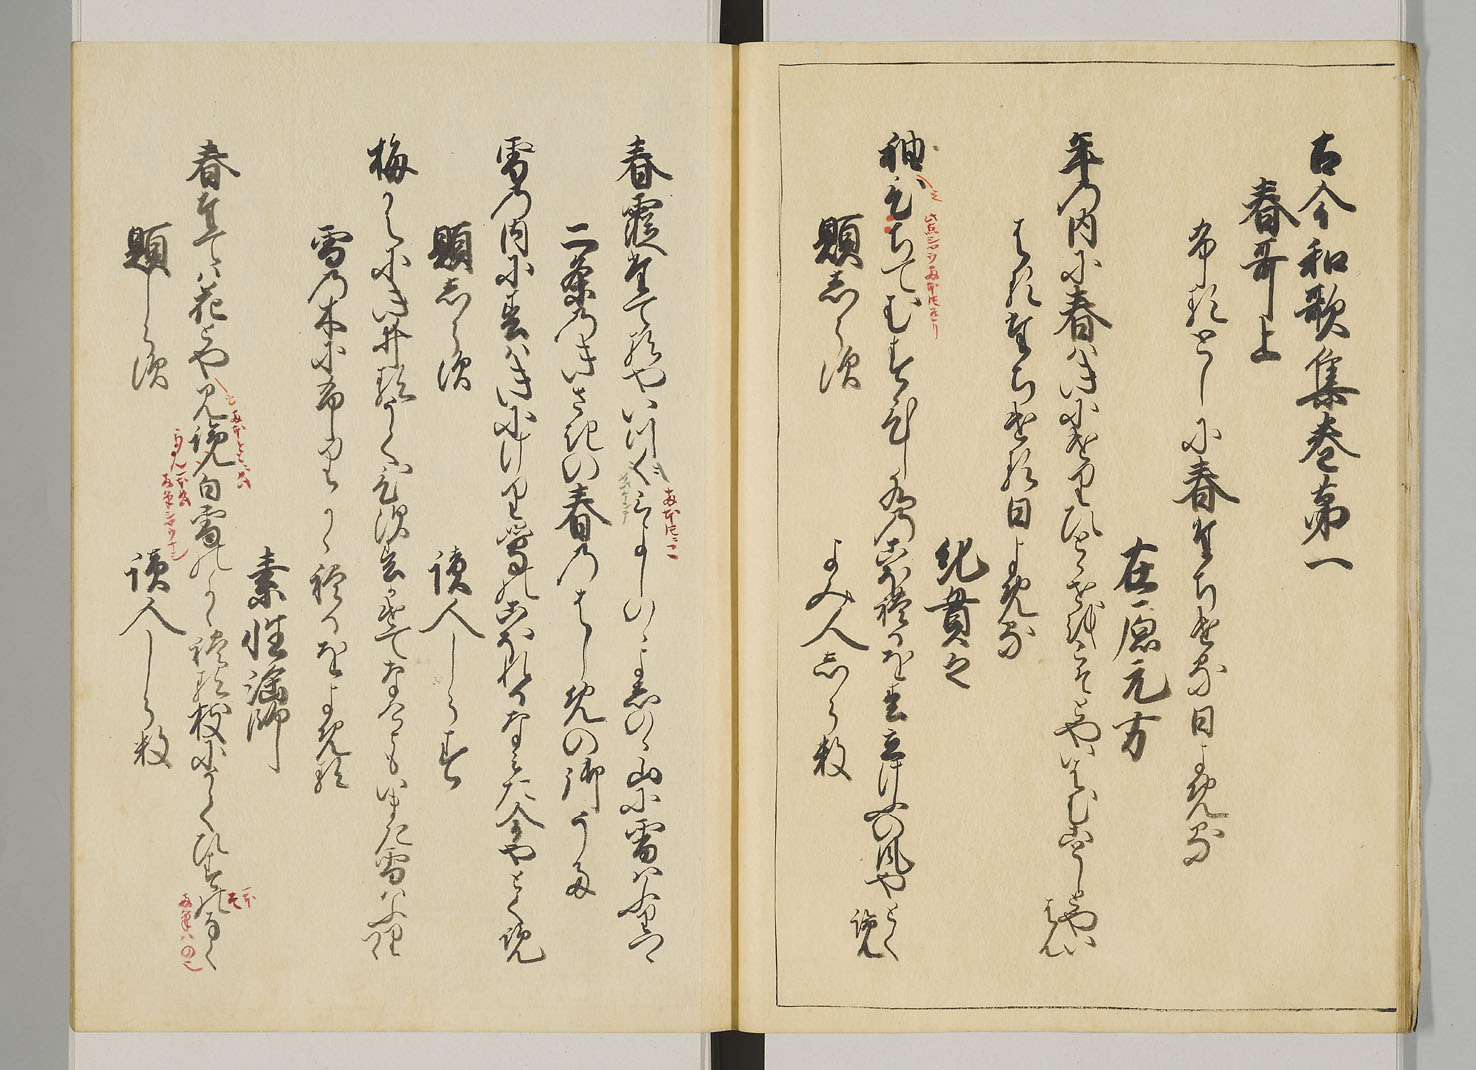 古今和歌集巻第一
春哥上
ふるとしに春たちける日よめる
在原元方
年の内に春はきにけりひとゝせをこそとやいはむことしとやい
はん
はるたちける日よめる
紀貫之
袖ひちてむすひし水のこほれるを春立けふの風やとく
覧
題しらす
よみ人しらす
春霞たてるやいつくみよしのゝよしのゝ山に雪はふりつゝ
二条のきさきの春のはしめの御うた
雪の内に春はきにけり鶯のこほれるなみた今やとく覧
題しらす
読人しらす
梅かえにきゐるうくひす春かけてなけともいまた雪はふりつゝ
雪の木にふりかゝれるをよめる
素性法師
春たては花とや見覧白雪のかゝれる枝にうくひすのなく
題しらす
読人しらす